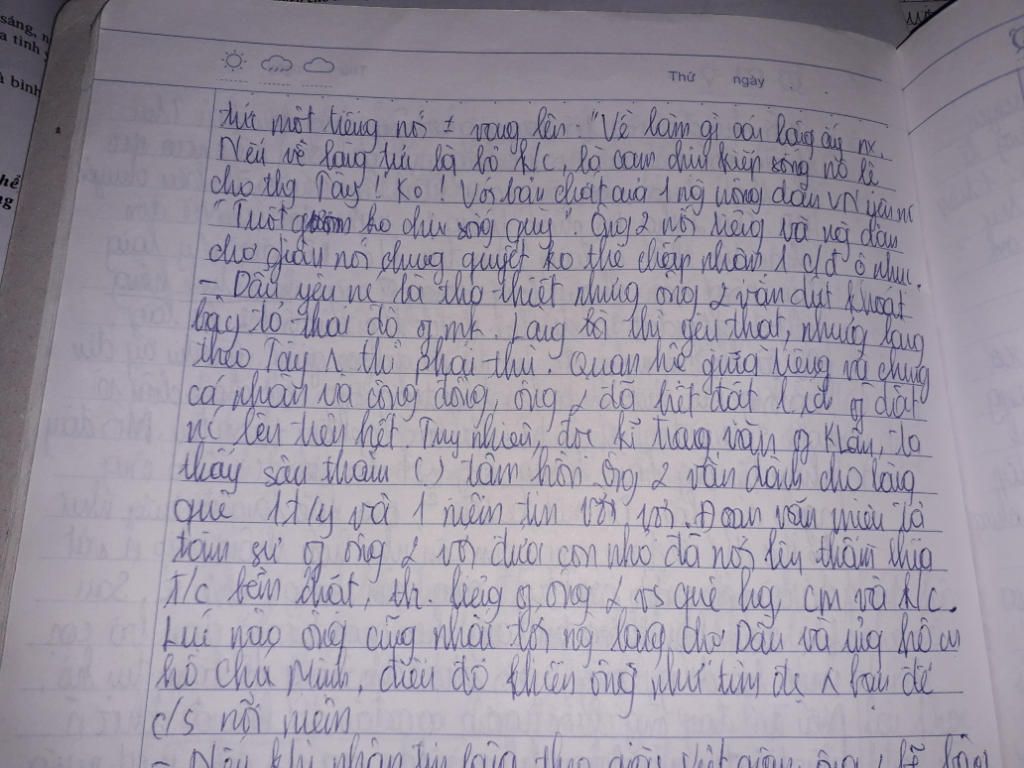 sáng, n
a tinh
à bình
hề
ng
Thứ ngày
tức một tiếng nói # vang lên: "Về làm gì cái làng ấy nx.
Nếu về làng tức là bỏ k/c là cam chịu kiếp sống nô lệ
cho thg Tây! Ko! Với bản chất của 1 ng nông dân VN yêu nc
"Tuốt gươm ko chịu sống quỳ". Ông 2 nói riêng và ng dân
chợ giầu nói chung quyết ko thể chấp nhận 1 c/đ ô nhục.
- Dẫu yêu nc là tha thiết nhưng ông 2 vẫn dứt khoát
bày tỏ thái độ mk. Làng thì yêu thật, nhưng làng
theo Tây thì phải thù. Quan hệ giữa riêng và chung
cá nhân và cộng đồng, ông 2 đã biết đặt đất
nc lên trên hết. Tuy nhiên, đọc kĩ trang văn Kl, ta
thấy sâu thẳm ( ) tâm hồn ông 2 vẫn dành cho làng
quê 1 t/y và 1 niềm tin vời vợi. Đoạn văn miêu tả
tâm sự ông 2 với đứa con nhỏ đã nói lên thấm thía
t/c bền chặt, th. liêng ông 2 vs quê hg, cm và k/c.
Lúc nào ông cũng nhắc tới ng làng chợ Dầu và ủng hộ cụ
hồ Chí Minh, điều đó khiến ông như tìm đc để
c/s nỗi niềm
- Nếu khi nhận tin làng theo giặc ông